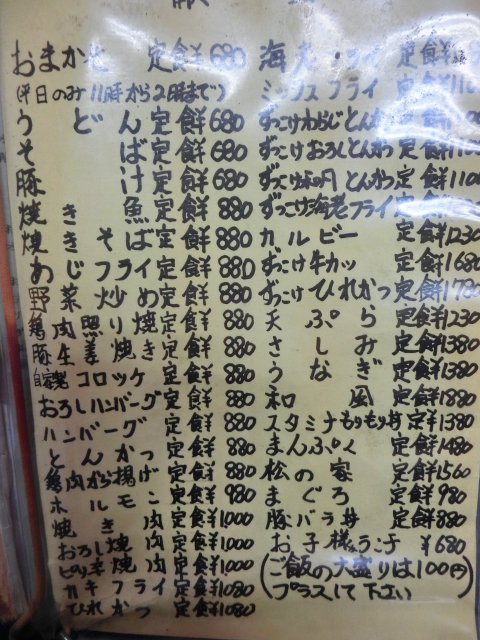 おまかせ 定食¥680
(平日のみ11時から2時まで)
うどん定食680
そば定食680
豚汁定食680
焼き魚定食880
焼きそば定食880
あじフライ定食880
野菜炒め定食880
鶏肉照り焼き定食880
豚生姜焼き定食880
自家製コロッケ定食880
おろしハンバーグ定食880
ハンバーグ定食880
とんかつ定食880
鶏肉から揚げ定食880
ホルモン定食¥980
焼き肉定食¥1000
おろし焼肉定食¥1000
ピリ辛焼肉定食¥1000
カキフライ定食1080
ひれかつ定食1080
海老フライ定食
ミックスフライ定食
ずっこけわらじとんかつ定食
ずっこけおろしとんかつ定食
ずっこけ とんかつ定食1100
ずっこけ海老フライ定食
カルビー定食1230
ずっこけ牛カツ定食1680
ずっこけひれかつ定食1780
天ぷら定食¥1230
さしみ定食¥1380
うなぎ定食1380
和風定食1880
スタミナもりもり丼定食¥1380
まんぷく定食1480
松の家定食1560
まぐろ定食980
豚バラ丼定食880
お子様ランチ ¥680
(ご飯の大盛りは100円
プラスして下さい)